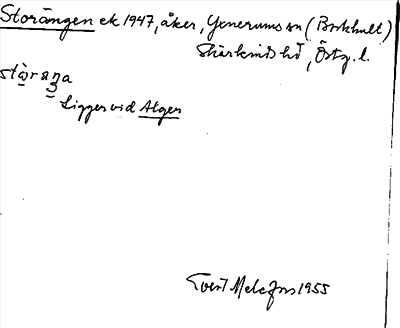 Storängen ek 1947, åker, Yxnerums sn (Borkhult)
Skärkinds hd, Östg. l.
stòraŋa
Ligger vid Algen
Evert Melefors 1955